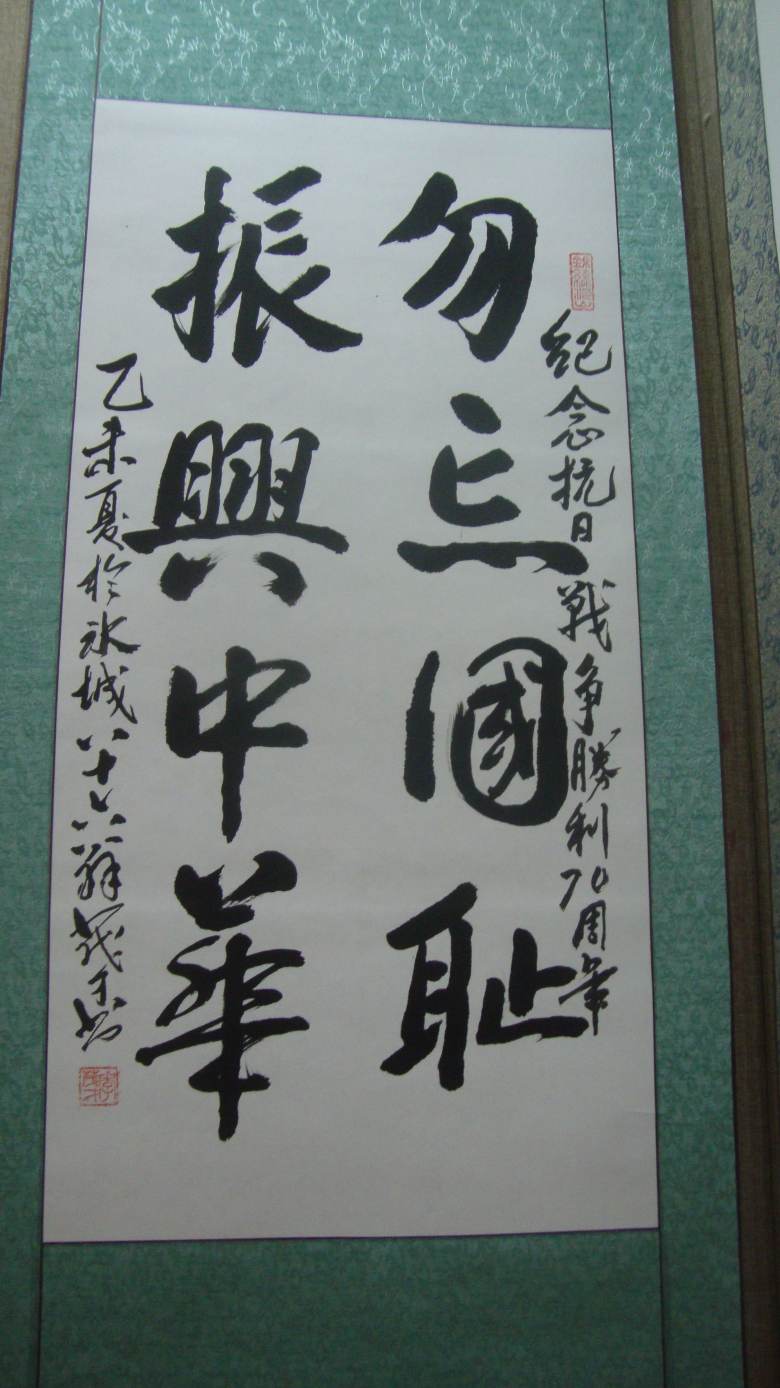 紀念抗日戰争勝利70周年
勿忘國耻
振興中華
乙未夏於冰城八十六翁茂才书